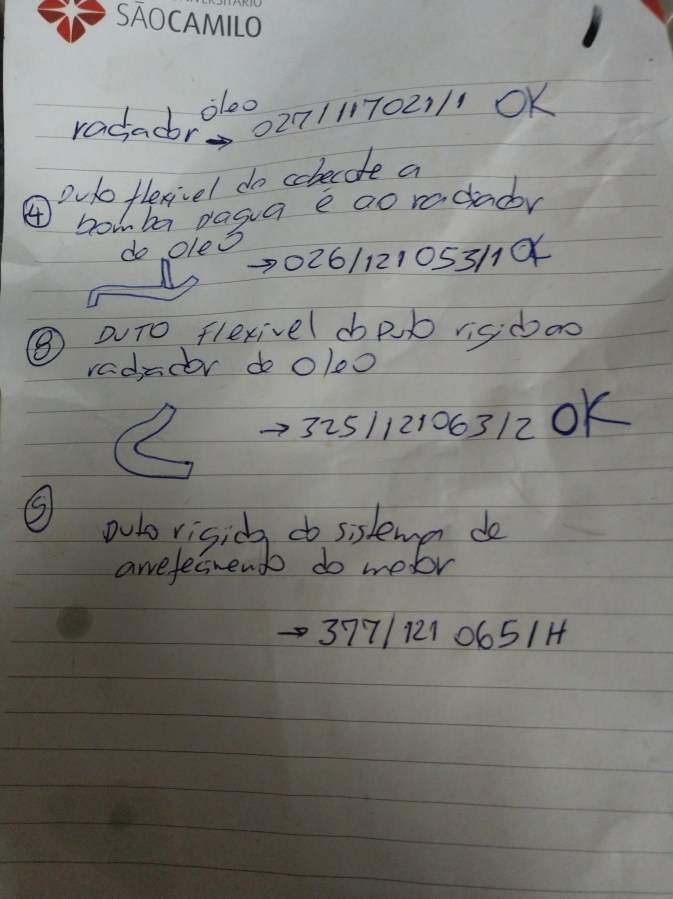 UNIVERSITÁRIO
SÃOCAMILO
1
óleo
radiador → 027/117021/1 OK
4 Duto flexivel do cabecote a
bomba dagua e ao radiador
de oleo
→ 026/121053/1 OK
8 DUTO flexivel do Duto rigido ao
radiador de oleo
→ 325/121063/2 OK
5
Duto rigido do sistema de
arrefecimento do motor
→ 377/121 065/H